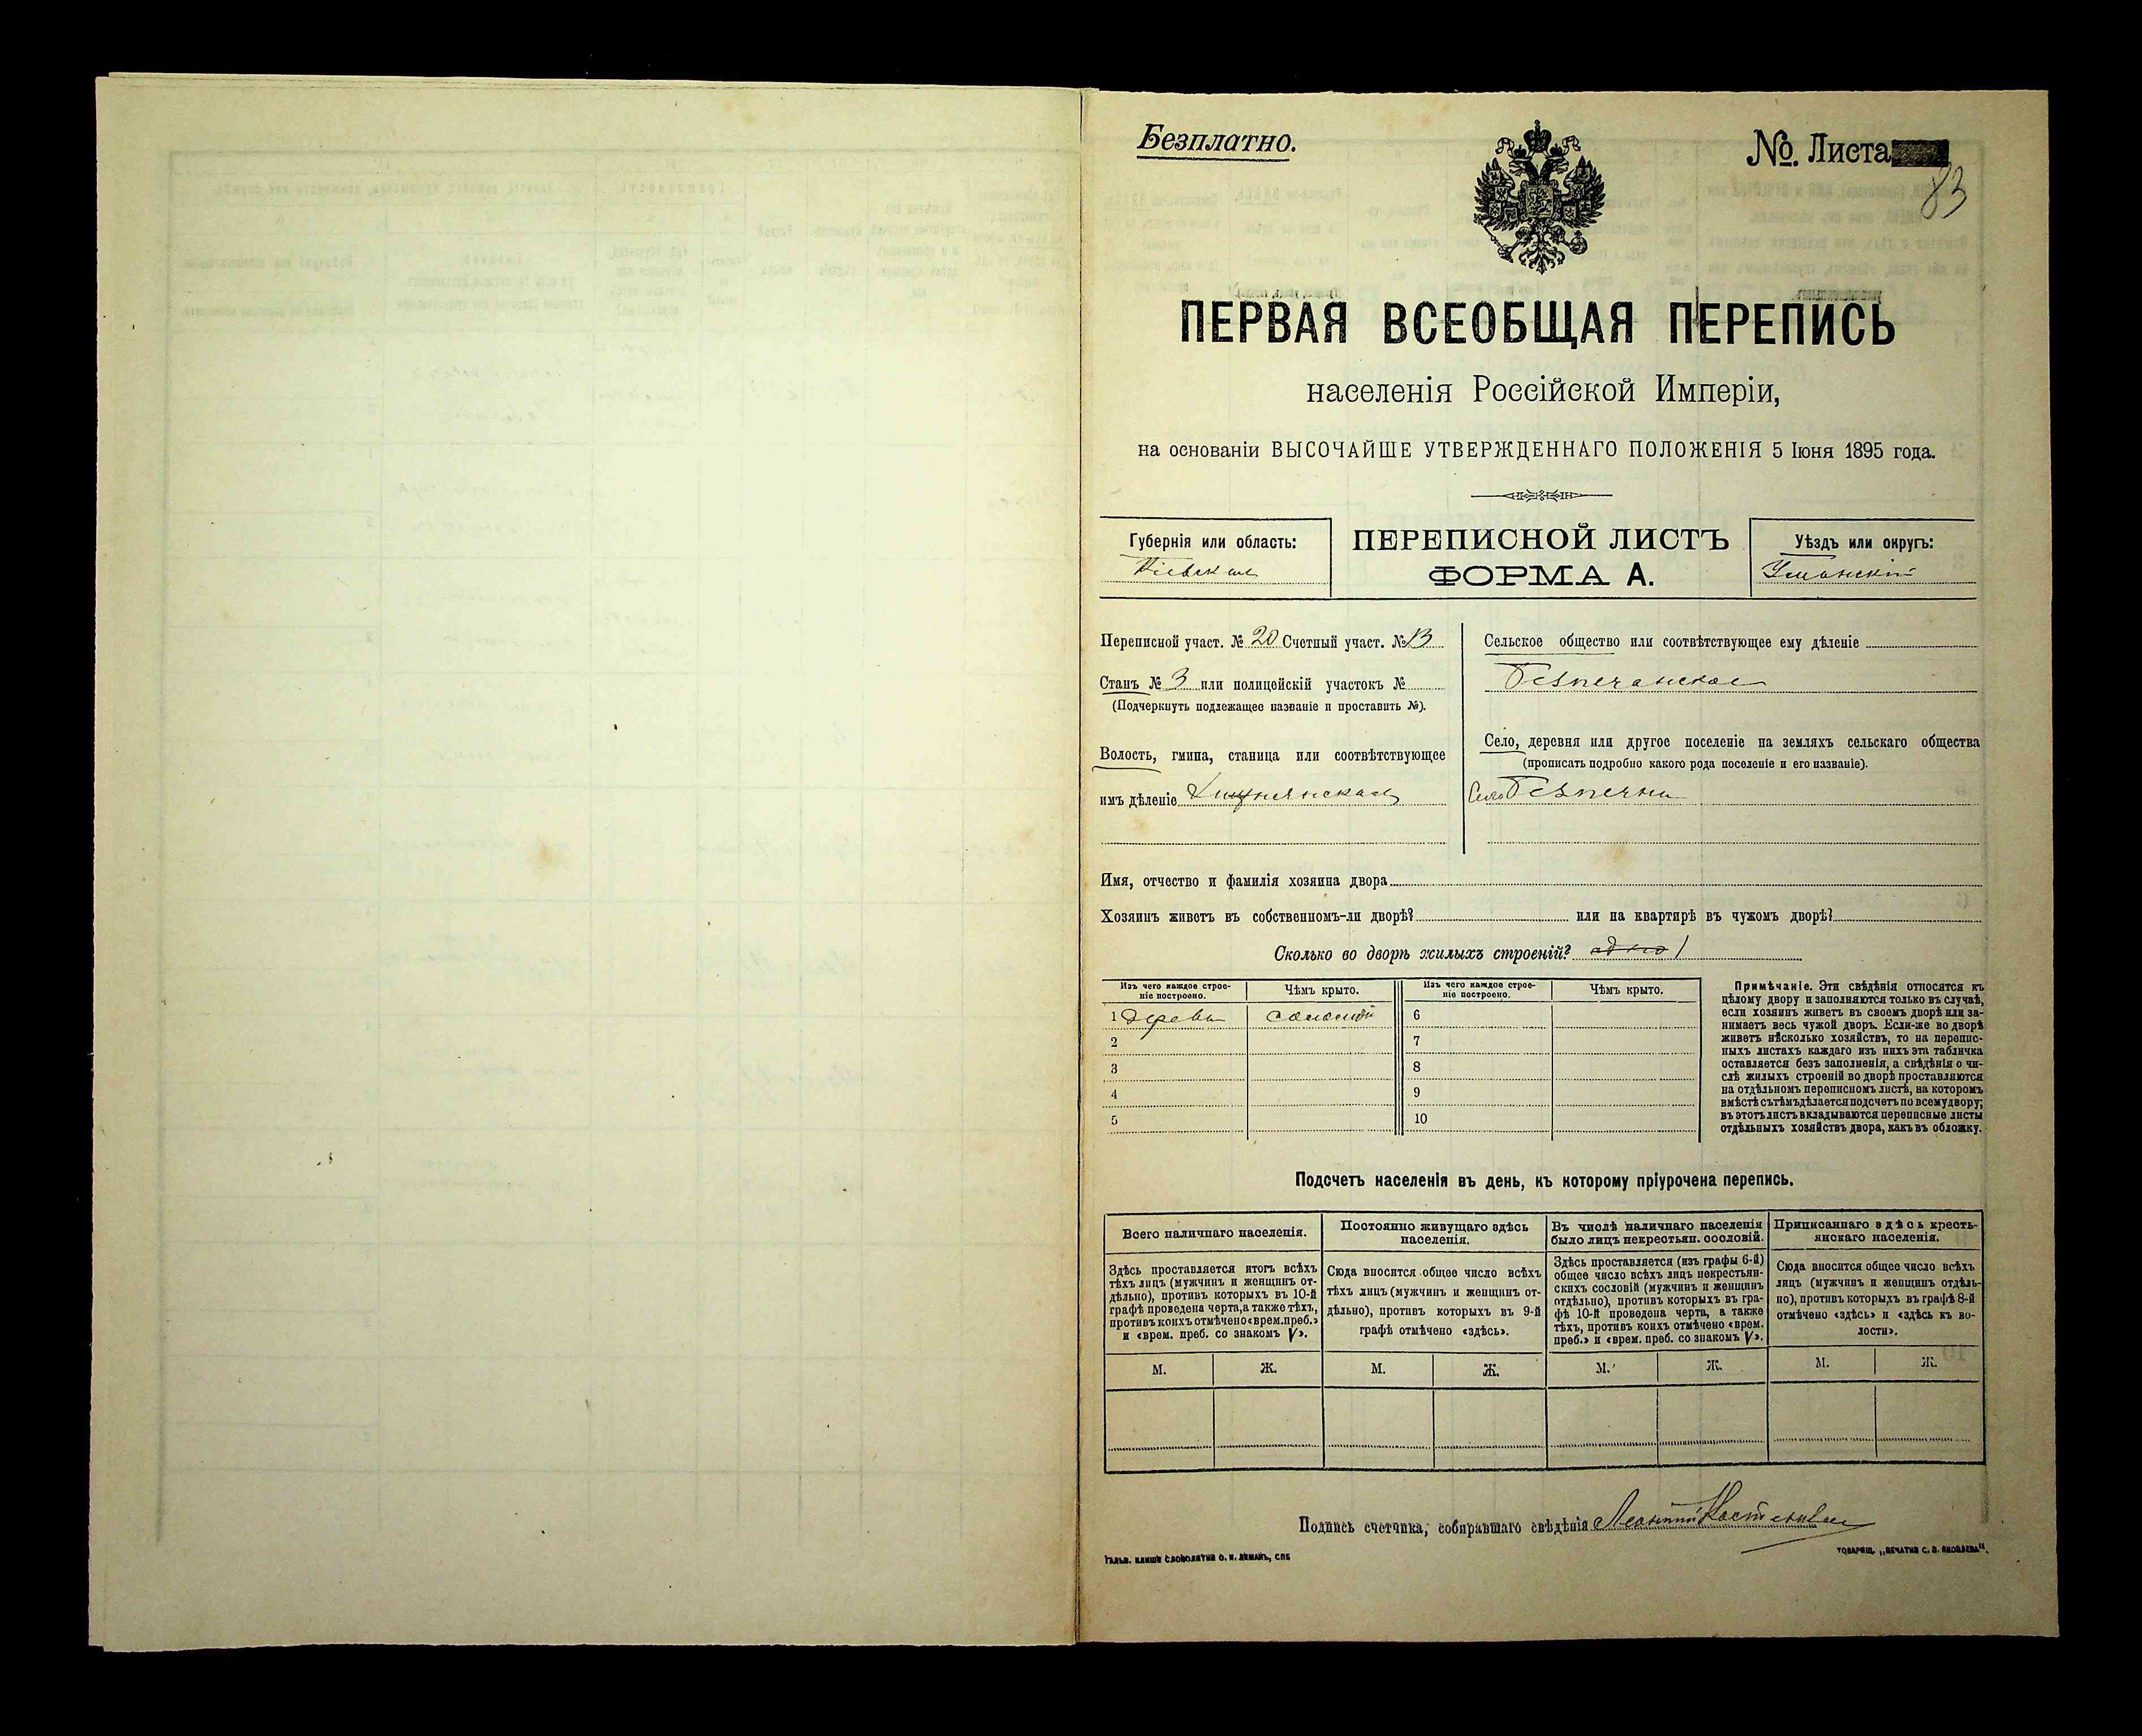 Безплатно.
№. Листа
83
ПЕРВАЯ ВСЕОБЩАЯ ПЕРЕПИСЬ
населенія Россійской Имперіи,
на основаніи ВЫСОЧАЙШЕ УТВЕРЖДЕННАГО ПОЛОЖЕНІЯ 5 Іюня 1895 года.
Губернія или область:
Кіевская
ПЕРЕПИСНОЙ ЛИСТЪ
ФОРМА А.
Уѣздъ или округъ:
Уманскій
Переписной участ. № 20 Счетный участ. № 13
Станъ № 3 или полицейскій участокъ №
(Подчеркнуть подлежащее названіе и проставить №).
Волость, гмина, станица или соотвѣтствующее
имъ дѣленіе
Сельское общество или соотвѣтствующее ему дѣленіе
Безпечанское
Село, деревня или другое поселеніе на земляхъ сельскаго общества
(прописать подробно какого рода поселеніе и его названіе).
Село Безпечна
Имя, отчество и фамилія хозяина двора
Хозяинъ живетъ въ собственномъ-ли дворѣ? или на квартирѣ въ чужомъ дворѣ?
Сколько во дворѣ жилыхъ строеній? одно 1
Изъ чего каждое строе-
ніе построено.
Чѣмъ крыто.
1 дерева соломой
2
3
4
5
Изъ чего каждое строе-
ніе построено.
Чѣмъ крыто.
6
7
8
9
10
Примѣчаніе. Эти свѣдѣнія относятся къ
цѣлому двору и заполняются только въ случаѣ,
если хозяинъ живетъ въ своемъ дворѣ или за-
нимаетъ весь чужой дворъ. Если-же во дворѣ
живетъ нѣсколько хозяйствъ, то на перепис-
ныхъ листахъ каждаго изъ нихъ эта табличка
оставляется безъ заполненія, а свѣдѣнія о чи-
слѣ жилыхъ строеній во дворѣ проставляются
на отдѣльномъ переписномъ листѣ, на которомъ
вмѣстѣ съ тѣмъ дѣлается подсчетъ по всему двору;
въ этотъ листъ вкладываются переписные листы
отдѣльныхъ хозяйствъ двора, какъ въ обложку.
Подсчетъ населенія въ день, къ которому пріурочена перепись.
Всего наличнаго населенія.
Здѣсь проставляется итогъ всѣхъ
тѣхъ лицъ (мужчинъ и женщинъ от-
дѣльно), противъ которыхъ въ 10-й
графѣ проведена черта, а также тѣхъ,
противъ коихъ отмѣчено «врем. преб.»
и «врем. преб. со знакомъ V».
М. Ж.
Постоянно живущаго здѣсь
населенія.
Сюда вносится общее число всѣхъ
тѣхъ лицъ (мужчинъ и женщинъ от-
дѣльно), противъ которыхъ въ 9-й
графѣ отмѣчено «здѣсь».
М. Ж.
Въ числѣ наличнаго населенія
было лицъ некрестьян. сословій.
Здѣсь проставляется (изъ графы 6-й)
общее число всѣхъ лицъ некрестьян-
скихъ сословій (мужчинъ и женщинъ
отдѣльно), противъ которыхъ въ гра-
фѣ 10-й проведена черта, а также
тѣхъ, противъ коихъ отмѣчено «врем.
преб.» и «врем. преб. со знакомъ V».
М. Ж.
Приписаннаго здѣсь кресть-
янскаго населенія.
Сюда вносится общее число всѣхъ
лицъ (мужчинъ и женщинъ отдѣль-
но), противъ которыхъ въ графѣ 8-й
отмѣчено «здѣсь» и «здѣсь къ во-
лости».
М. Ж.
Подпись счетчика, собиравшаго свѣдѣнія
Гальв. клише словолитни О. И. Леманъ, СПБ
Товарищ. „Печатня С. П. Яковлева".